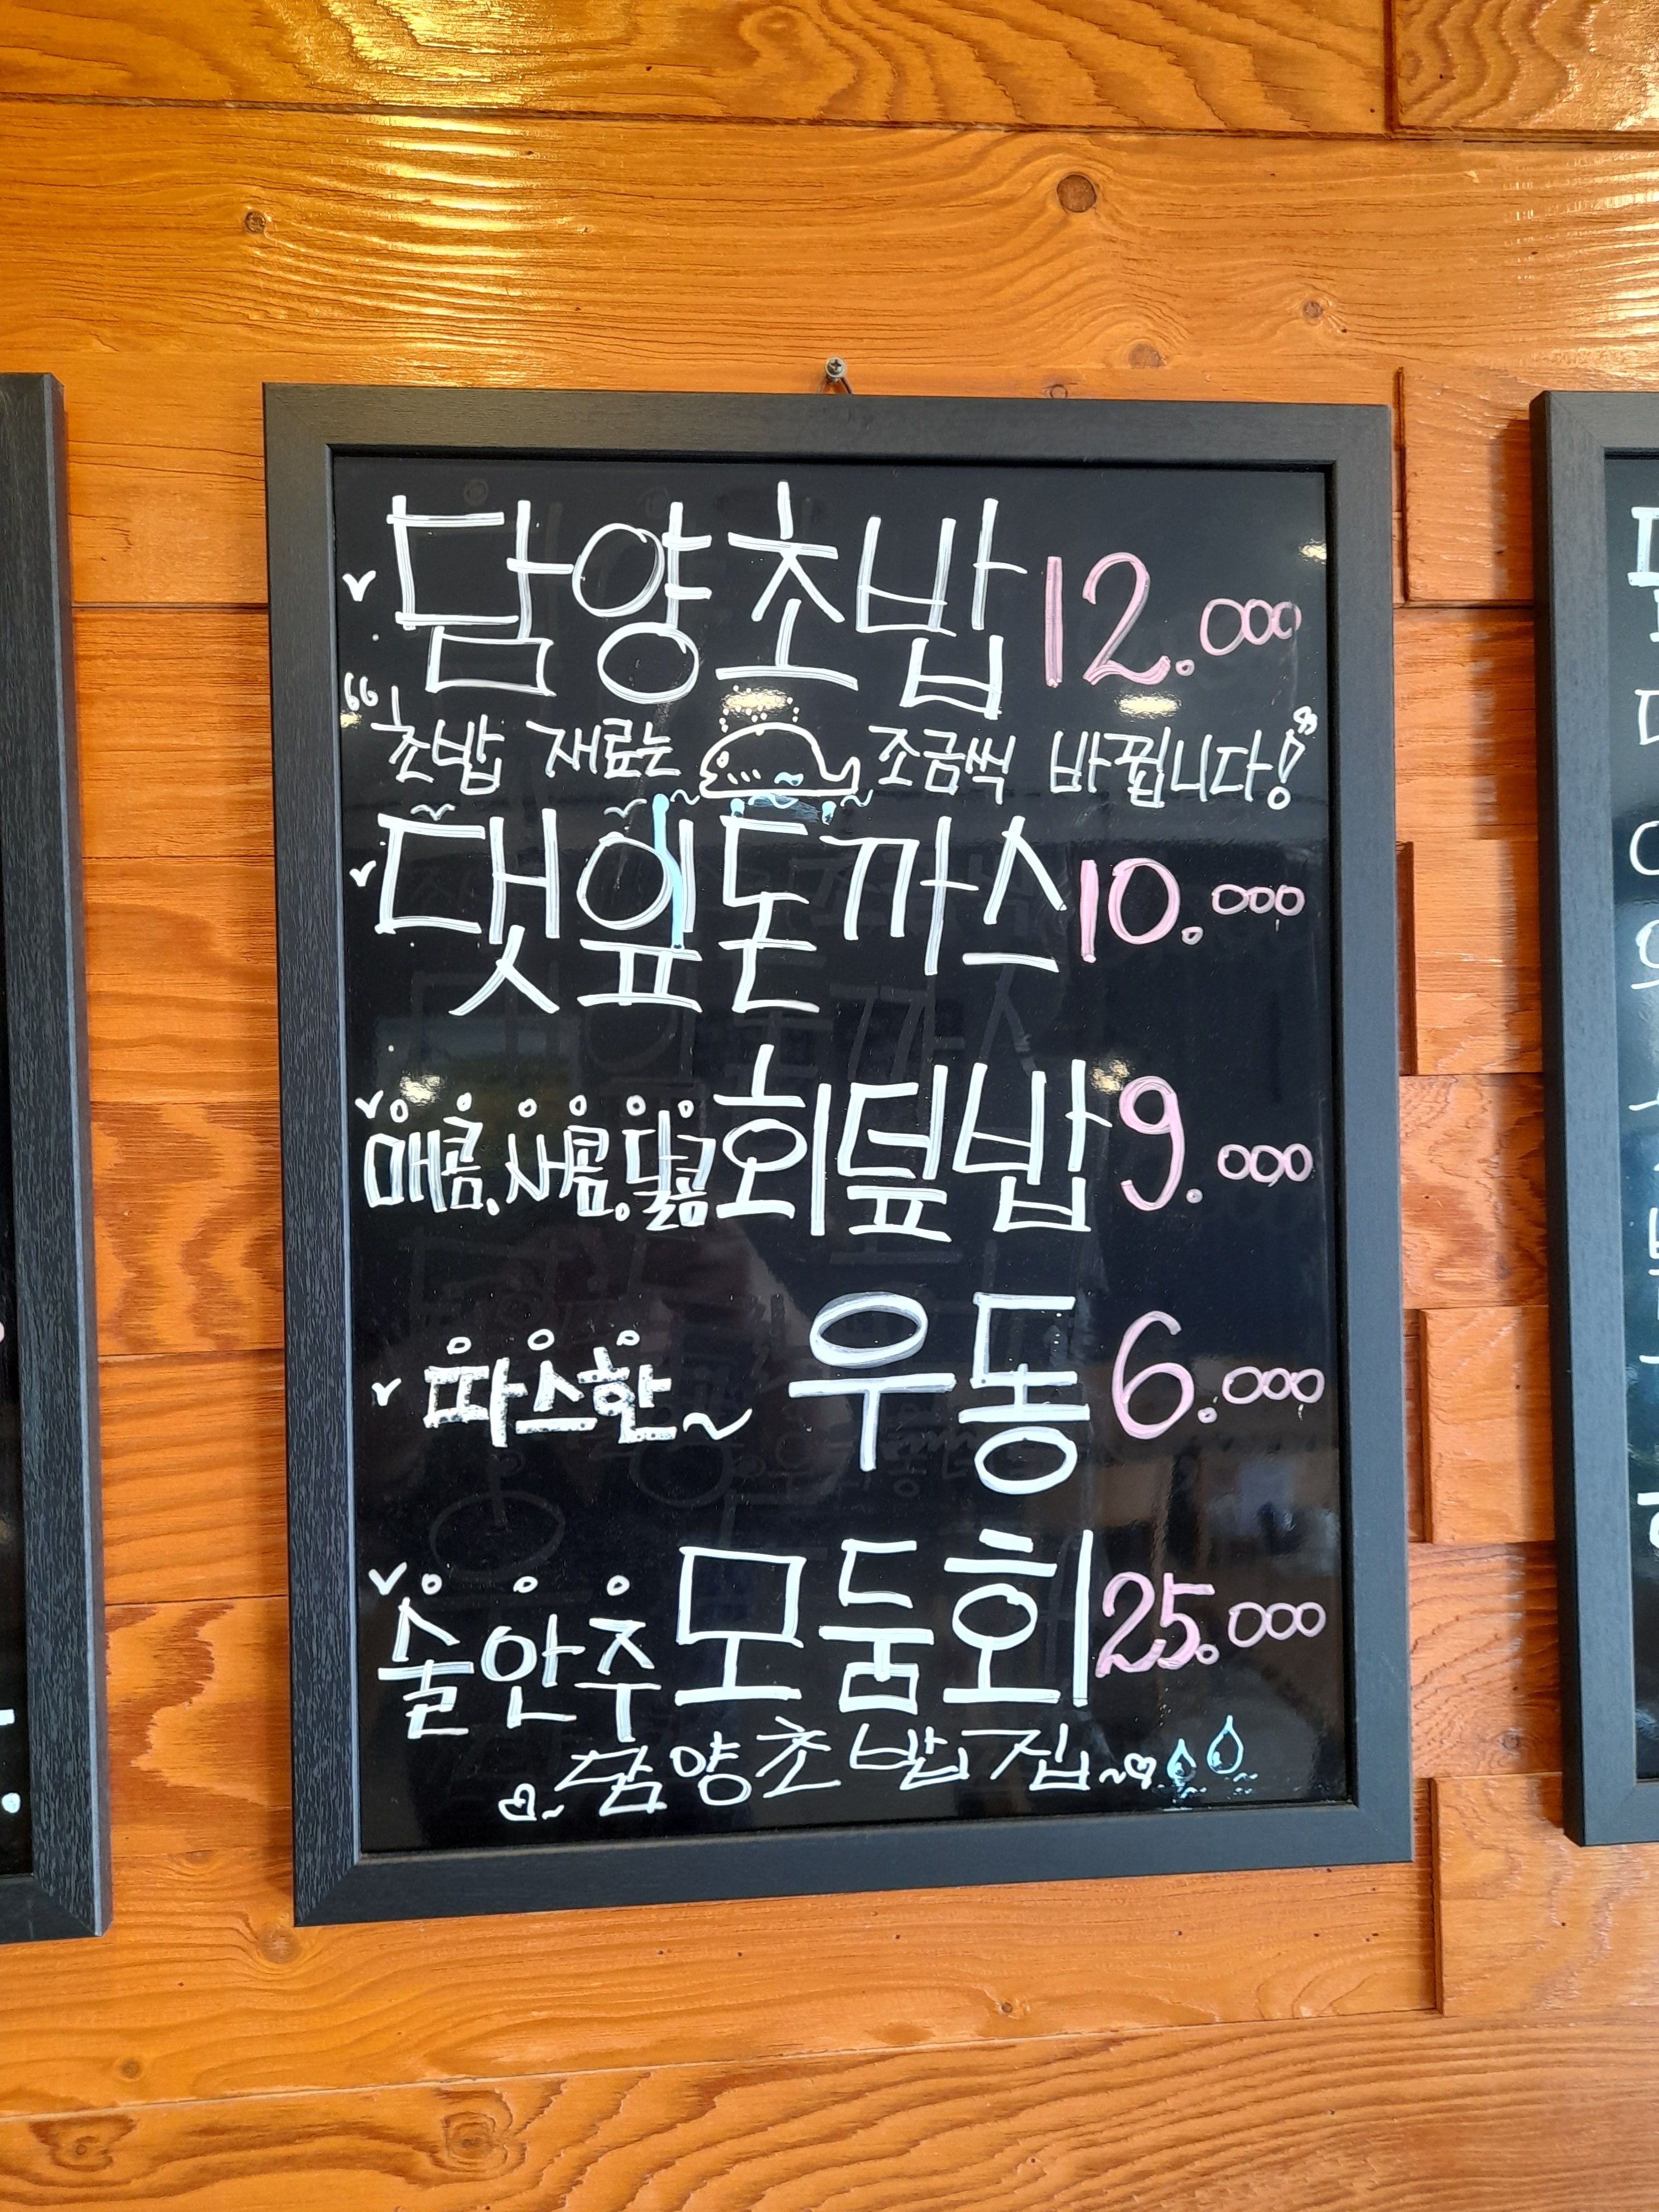 담양초밥 12.000
"초밥 재료는 조금씩 바뀝니다!"
댓잎돈까스 10.000
매콤.새콤.달콤 회덮밥 9.000
따스한~ 우동 6.000
술안주 모둠회 25.000
담양초밥집~